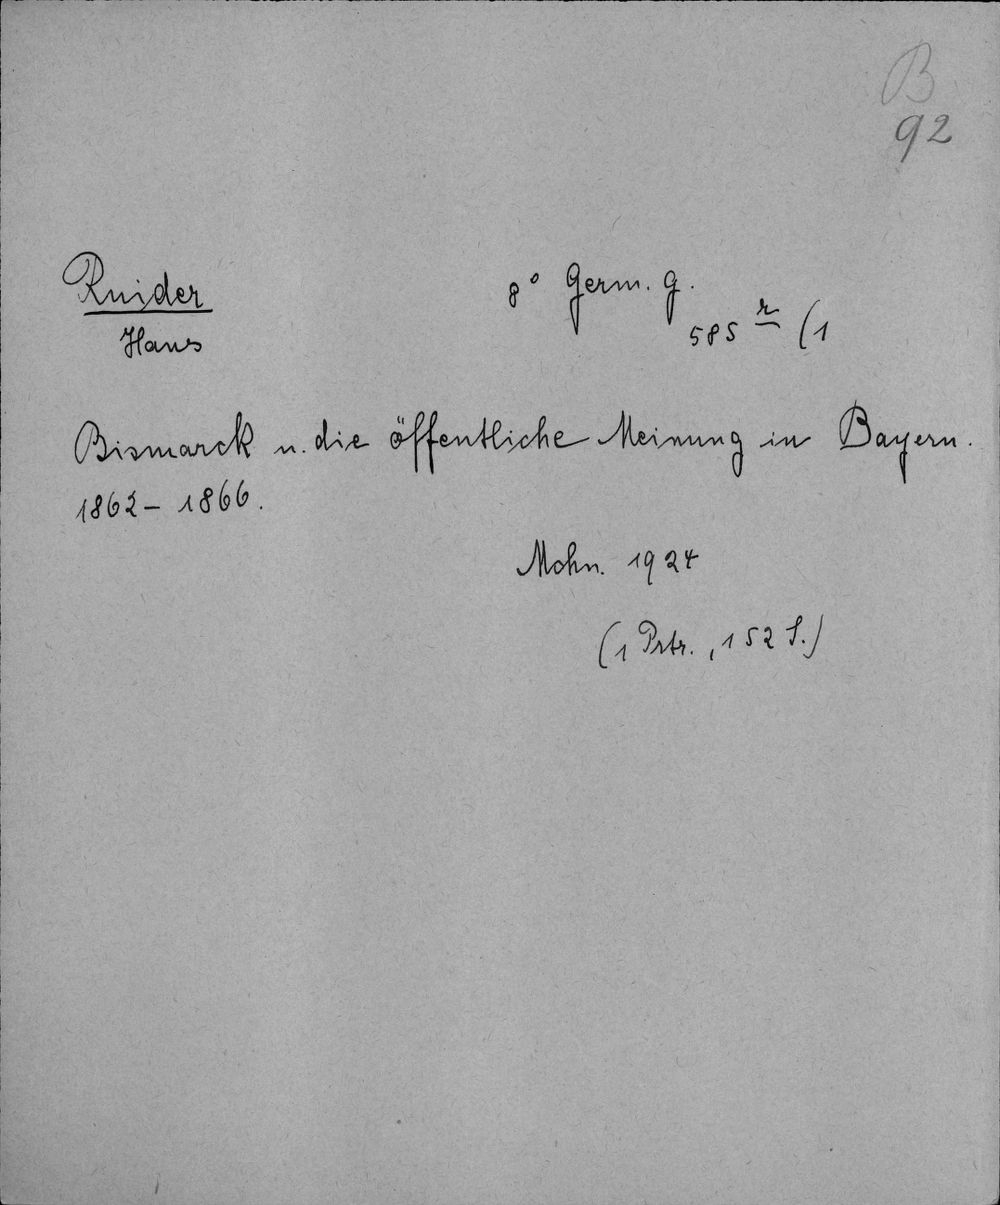 B
92
Ruider
8° Germ. g.
585 r (1
Hans
Bismarck u. die öffentliche Meinung in Bayern.
1862 - 1866.
Mchn. 1924
(1 Prtr., 152 S.)